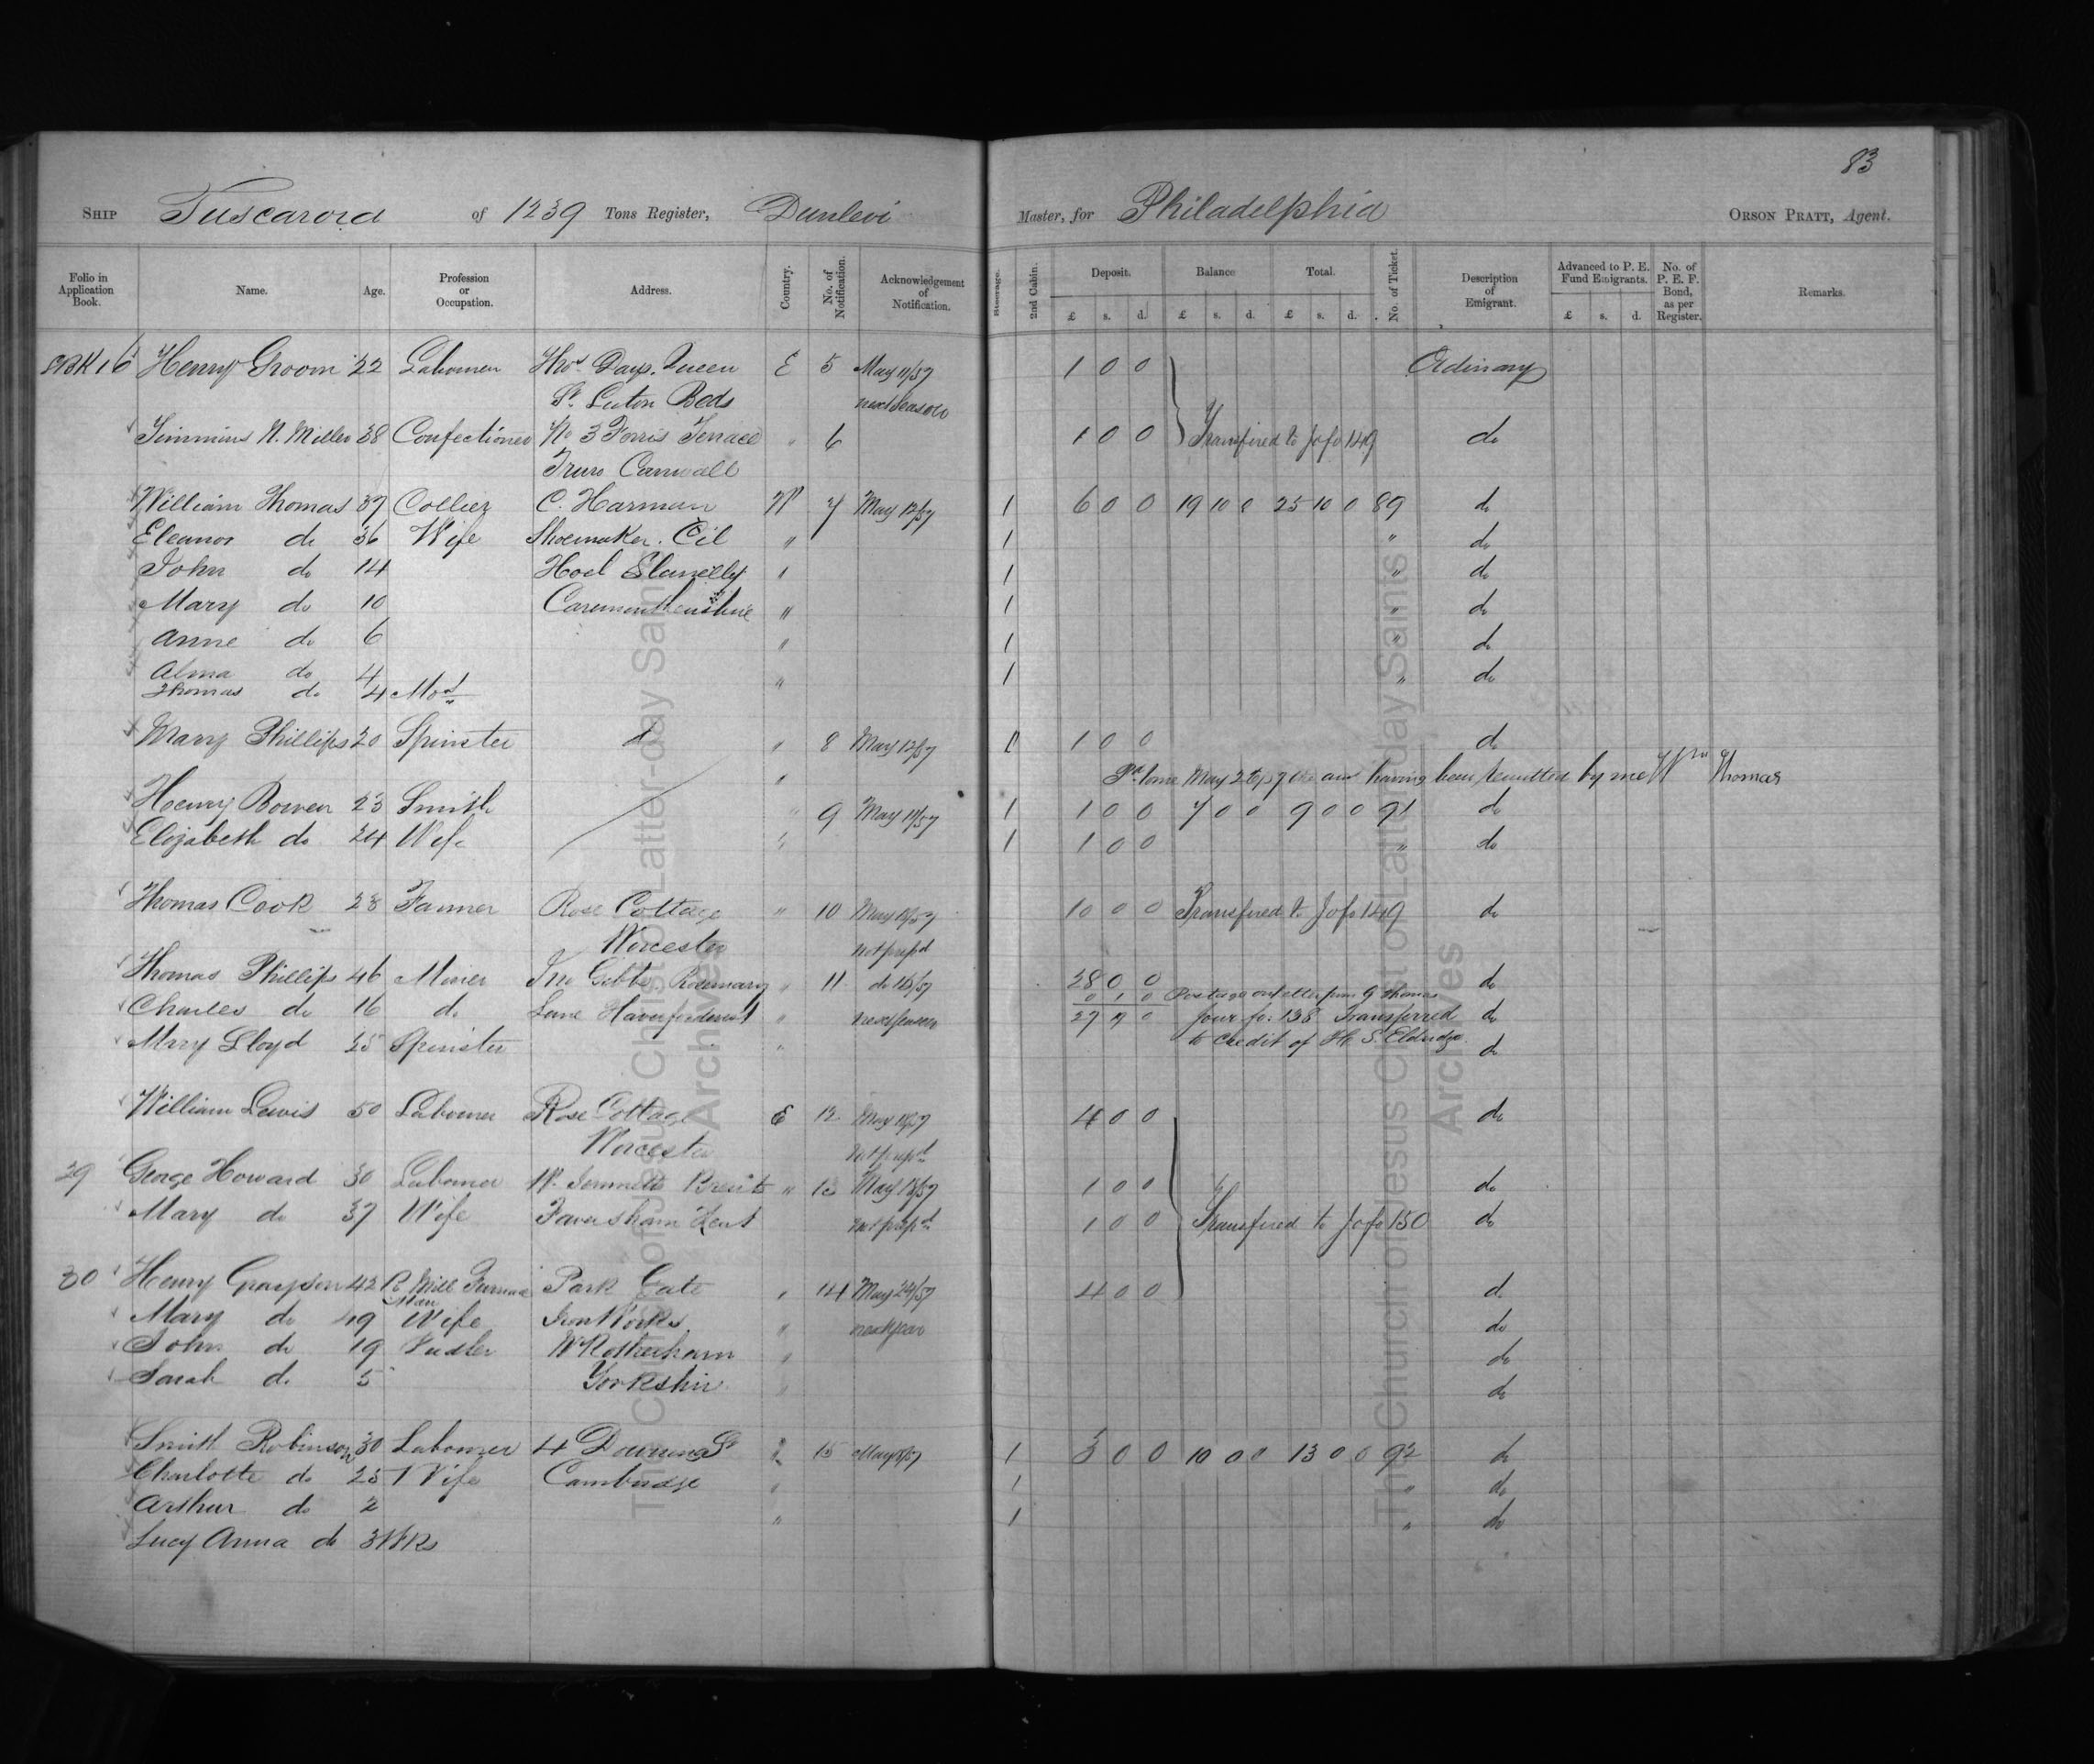 83
SHIP Tuscarora of 1239 Tons Register, Dunlevi Master, for Philadelphia ORSON PRATT, Agent.
Folio in Application Book. Name. Age. Profession or Occupation. Address. Country. No. of Notification. Acknowledgement of Notification. Steerage. 2nd Cabin. Deposit. Balance Total. No. of Ticket. Description of Emigrant. Advanced to P. E. Fund Emigrants. No. of P. E. F. Bond, as per Register. Remarks.
£ s. d. £ s. d. £ s. d. £ s. d.
16 Henry Groom 22 Labourer Thos Days. Queen E 5 May 11/57 1 0 0 Ordinary
St. Luton Beds next season
Simmins N. Miller 38 Confectioner No 3 Ferris Terrace " 6 1 0 0 Transfired to Jo fo 149 do
Truro Cornwall
William Thomas 37 Collier C. Harman W 7 May 12/57 1 6 0 0 19 10 0 25 10 0 89 do
Eleanor do 36 Wife Shoemaker. Cil " 1 " do
John do 14 Hoel Llanelly " 1 " do
Mary do 10 Caremarthenshire " 1 " do
Anne do 6 " 1 " do
Alma do 4 " 1 " do
Thomas do 4 Mos
Mary Phillips 20 Spinster do " 8 May 12/57 1 1 0 0 do
Pd. May having been remitted by me Wm Thomas
Henry Bowen 23 Smith " 9 May 11/57 1 1 0 0 7 0 0 9 0 0 91 do
Elizabeth do 24 Wife " 1 1 0 0 " do
Thomas Cook 28 Farmer Rose Cottage " 10 May 13/57 10 0 0 Transfired to Jo fo 149 do
Worcester not prepd
Thomas Phillips 46 Miner Jno Gibbs Rosemary " 11 do 13/57 28 0 0 do
0 1 0 Postage on letter from G Thomas
Charles do 16 do Lane Haverfordwest " next season 27 0 Jour fo: 138 Transferred do
Mary Lloyd 25 Spinster " to credit of H. S. Eldridge. do
William Lewis 50 Labourer Rose Cottage E 12 May 13/57 4 0 0 do
Worcester not prepd
29 George Howard 30 Labourer W. Brents " 13 May 13/57 1 0 0 do
Mary do 37 Wife Faversham Kent not prepd 1 0 0 Transfired to Jo fo 150 do
30 Henry Grayson 42 R. Mill Furnace Park Gate " 14 May 24/57 4 0 0 do
Man
Mary do 49 Wife Iron Works " next year do
John do 19 Pudler Nr Rotherham " do
Sarah do 5 Yorkshire " do
Smith Robinson 30 Labourer 4 Downing St " 15 May 1 3 0 0 10 0 0 13 0 0 92 do
Charlotte do 25 Wife Cambridge " 1 " do
Arthur do 2 " 1 " do
Lucy Anna do 3 Wks
The Church of Jesus Christ of Latter-day Saints
Archives
The Church of Jesus Christ of Latter-day Saints
Archives